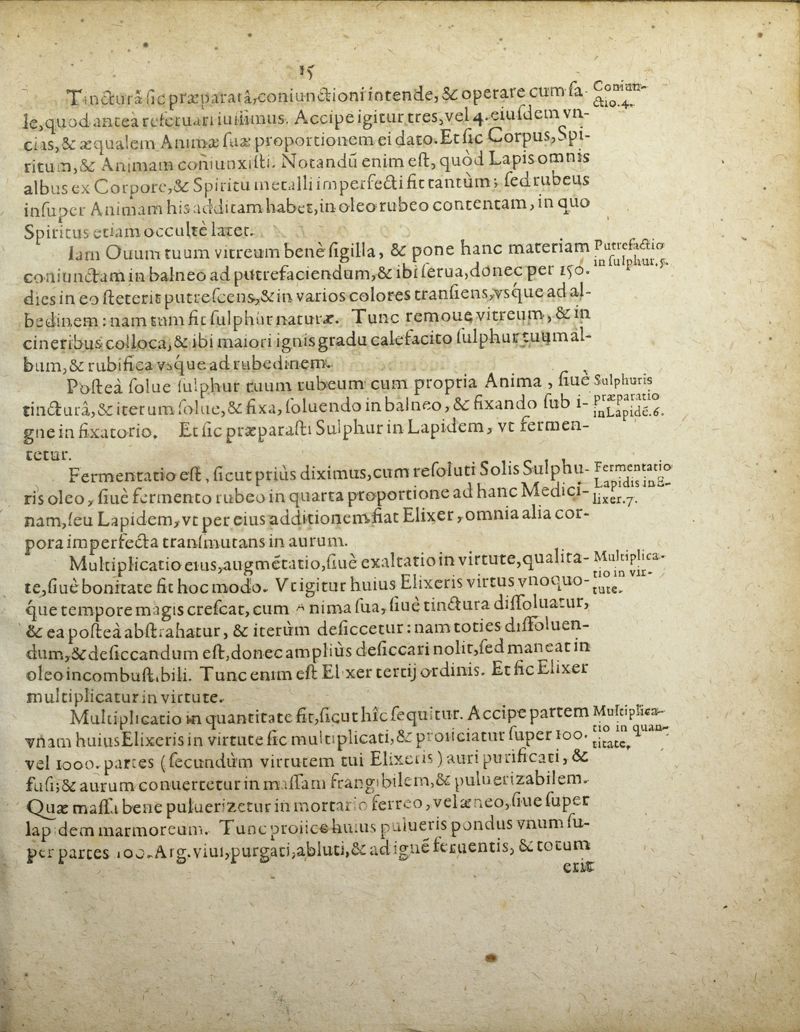 15
Tincturâ sic præparatâ, coniunctioni intende, & operare cum sa-
le, quod antea reseruari iussimus. Accipe igitur tres, vel 4. eiusdem vn-
cias, & æqualem Animæ suæ proportionem ei dato. Et sic Corpus, Spi-
ritum, & Animam coniunxisti. Notandū enim est, quòd Lapis omnis
albus ex Corpore, & Spiritu metalli imperfecti fit tantùm; sed rubeus
insuper Animam his additam habet, in oleo rubeo contentam, in quo
Spiritus etiam occultè latet.
Coniun-
ctio. 4.
Iam Ouum tuum vitreum benè sigilla, & pone hanc materiam
coniunctam in balneo ad putrefaciendum, & ibi serua, donec per 150.
dies in eo steterit putrescens, & in varios colores transiens, vsque ad al-
bedinem: nam tum fit sulphur naturæ. Tunc remoue vitreum, & in
cineribus colloca, & ibi maiori ignis gradu calefacito sulphur tuum al-
bum, & rubifica vsque ad rubedinem.
Putrefactio
in sulphur. 5.
Posteà solue sulphur tuum rubeum cum propria Anima, siuè
tincturâ, & iterum solue, & fixa, soluendo in balneo, & fixando sub i-
gne in fixatorio. Et sic præparasti Sulphur in Lapidem, vt fermen-
tetur.
Sulphuris
præparatio
in Lapidē. 6.
Fermentatio est, sicut priùs diximus, cum resoluti Solis Sulphu-
ris oleo, siuè fermento rubeo in quarta proportione ad hanc Medici-
nam, seu Lapidem, vt per eius additionem fiat Elixer, omnia alia cor-
pora imperfecta transmutans in aurum.
Fermentatio
Lapidis in E-
lixer. 7.
Multiplicatio eius, augmētatio, siuè exaltatio in virtute, qualita-
te, siuè bonitate fit hoc modo. Vt igitur huius Elixeris virtus vnoquo-
que tempore magis crescat, cum Anima sua, siuè tinctura dissoluatur,
& ea posteà abstrahatur, & iterùm desiccetur: nam toties dissoluen-
dum, & desiccandum est, donec ampliùs desiccari nolit, sed maneat in
oleo incombustibili. Tunc enim est Elixer tertij ordinis. Et sic Elixer
multiplicatur in virtute.
Multiplica-
tio in vir-
tute.
Multiplicatio in quantitate fit, sicut hîc sequitur. Accipe partem
vnam huius Elixeris in virtute sic multiplicati, & proijciatur super 100.
vel 1000. partes (secundùm virtutem tui Elixeris) auri purificati, &
fusi; & aurum conuertetur in massam frangibilem, & puluerizabilem.
Quæ massa bene puluerizetur in mortario ferreo, vel æneo, siue super
lapidem marmoreum. Tunc proiice huius pulueris pondus vnum su-
per partes 100. Arg. viui, purgati, abluti, & ad ignē feruentis, & totum
Multiplica-
tio in quan-
titate.
erit